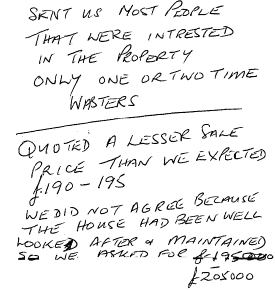 SENT US MOST PEOPLE
THAT WERE INTRESTED
IN THE PROPERTY
ONLY ONE OR TWO TIME
WASTERS
QUOTED A LESSER SALE
PRICE THAN WE EXPECTED
£190-195
WE DID NOT AGREE BECAUSE
THE HOUSE HAD BEEN WELL
LOOKED AFTER & MAINTAINED
SO WE ASKED FOR £195000
£205000